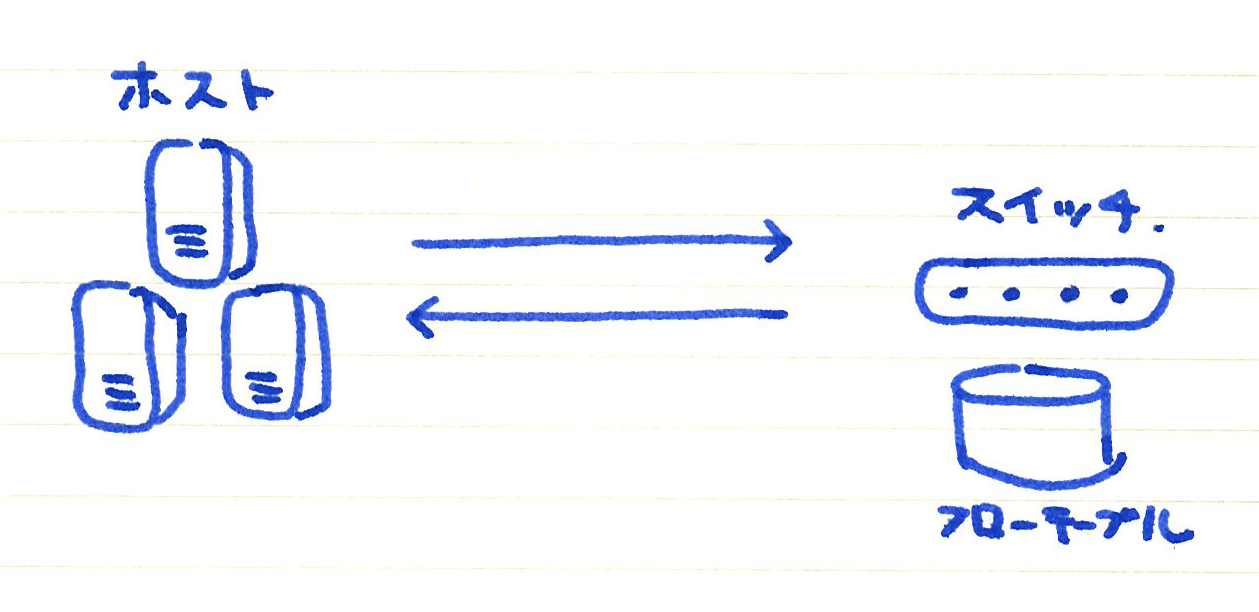 ホスト
スイッチ.
フローテーブル